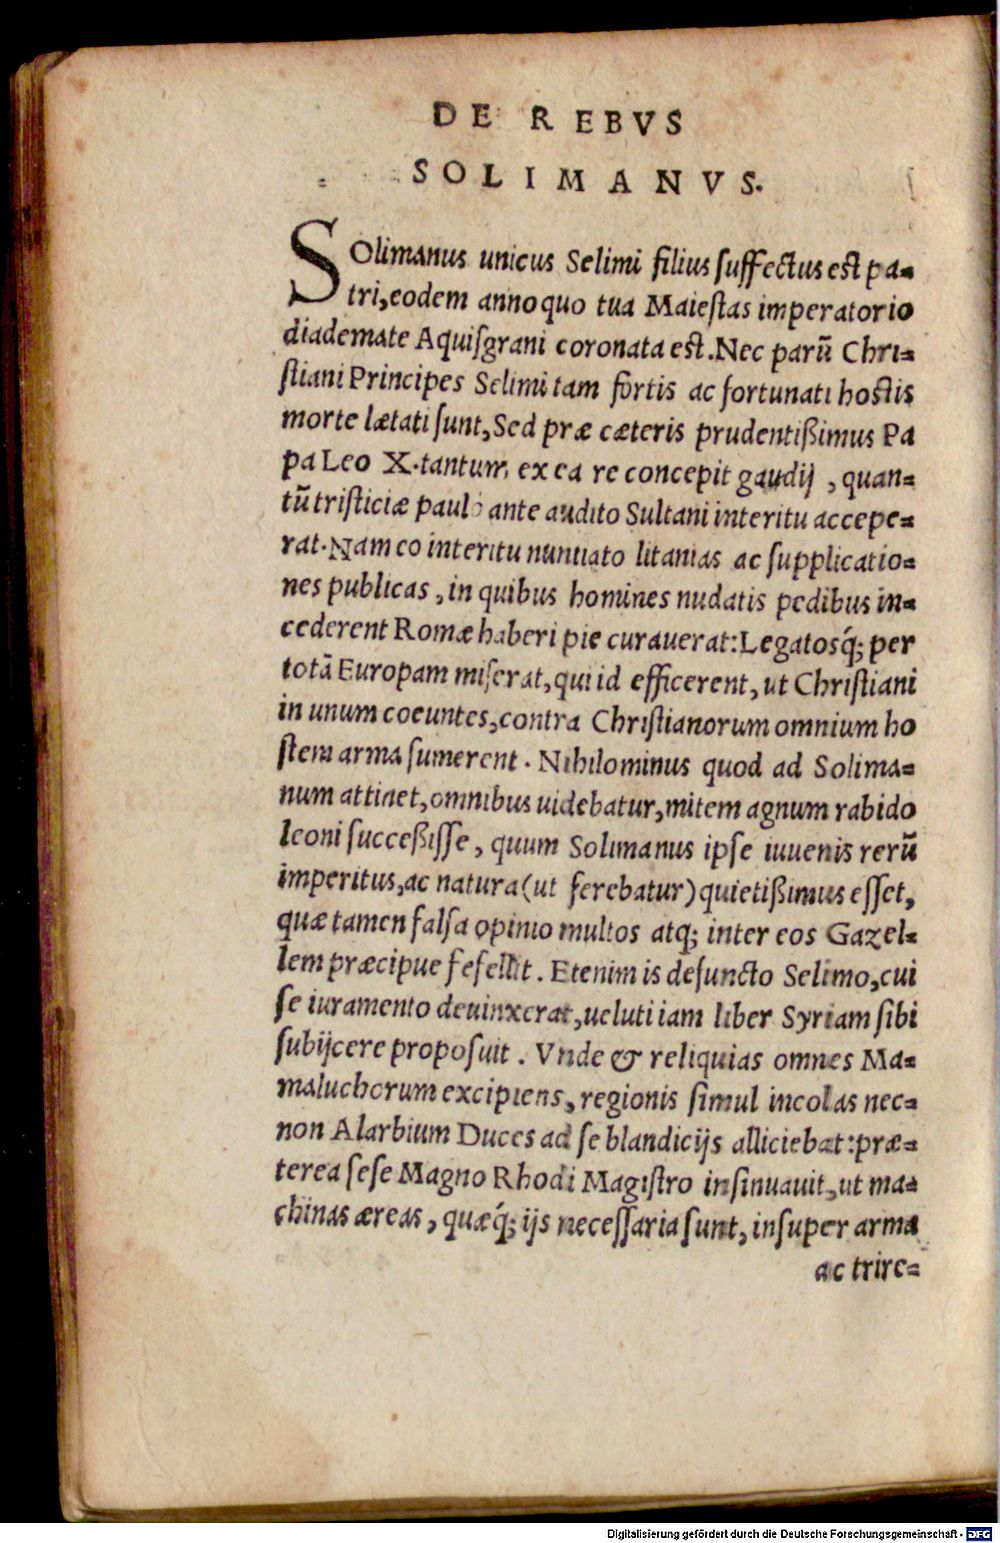 DE REBVS
SOLIMANVS.
SOlimanus unicus Selimi filius suffectus est pa-
tri, eodem anno quo tua Maiestas imperatorio
diademate Aquisgrani coronata est. Nec parū Chri-
stiani Principes Selimi tam fortis ac fortunati hostis
morte lætati sunt, Sed præ cæteris prudentißimus Pa
pa Leo X. tantum ex ea re concepit gaudij, quan-
tū tristiciæ paulo ante audito Sultani interitu accepe-
rat. Nam eo interitu nuntiato litanias ac supplicatio-
nes publicas, in quibus homines nudatis pedibus in-
cederent Romæ haberi pie curauerat: Legatosq́; per
totā Europam miserat, qui id efficerent, ut Christiani
in unum coeuntes, contra Christianorum omnium ho
stem arma sumerent. Nihilominus quod ad Solima-
num attinet, omnibus uidebatur, mitem agnum rabido
leoni succeßisse, quum Solimanus ipse iuuenis rerū
imperitus, ac natura (ut ferebatur) quietißimus esset,
quæ tamen falsa opinio multos atq; inter eos Gazel-
lem præcipue fefellit. Etenim is defuncto Selimo, cui
se iuramento deuinxerat, ueluti iam liber Syriam sibi
subijcere proposuit. Vnde & reliquias omnes Ma-
maluchorum excipiens, regionis simul incolas nec-
non Alarbium Duces ad se blandicijs alliciebat: præ-
terea sese Magno Rhodi Magistro insinuauit, ut ma-
chinas æreas, quæq́; ijs necessaria sunt, insuper arma
ac trire-
Digitalisierung gefördert durch die Deutsche Forschungsgemeinschaft - DFG